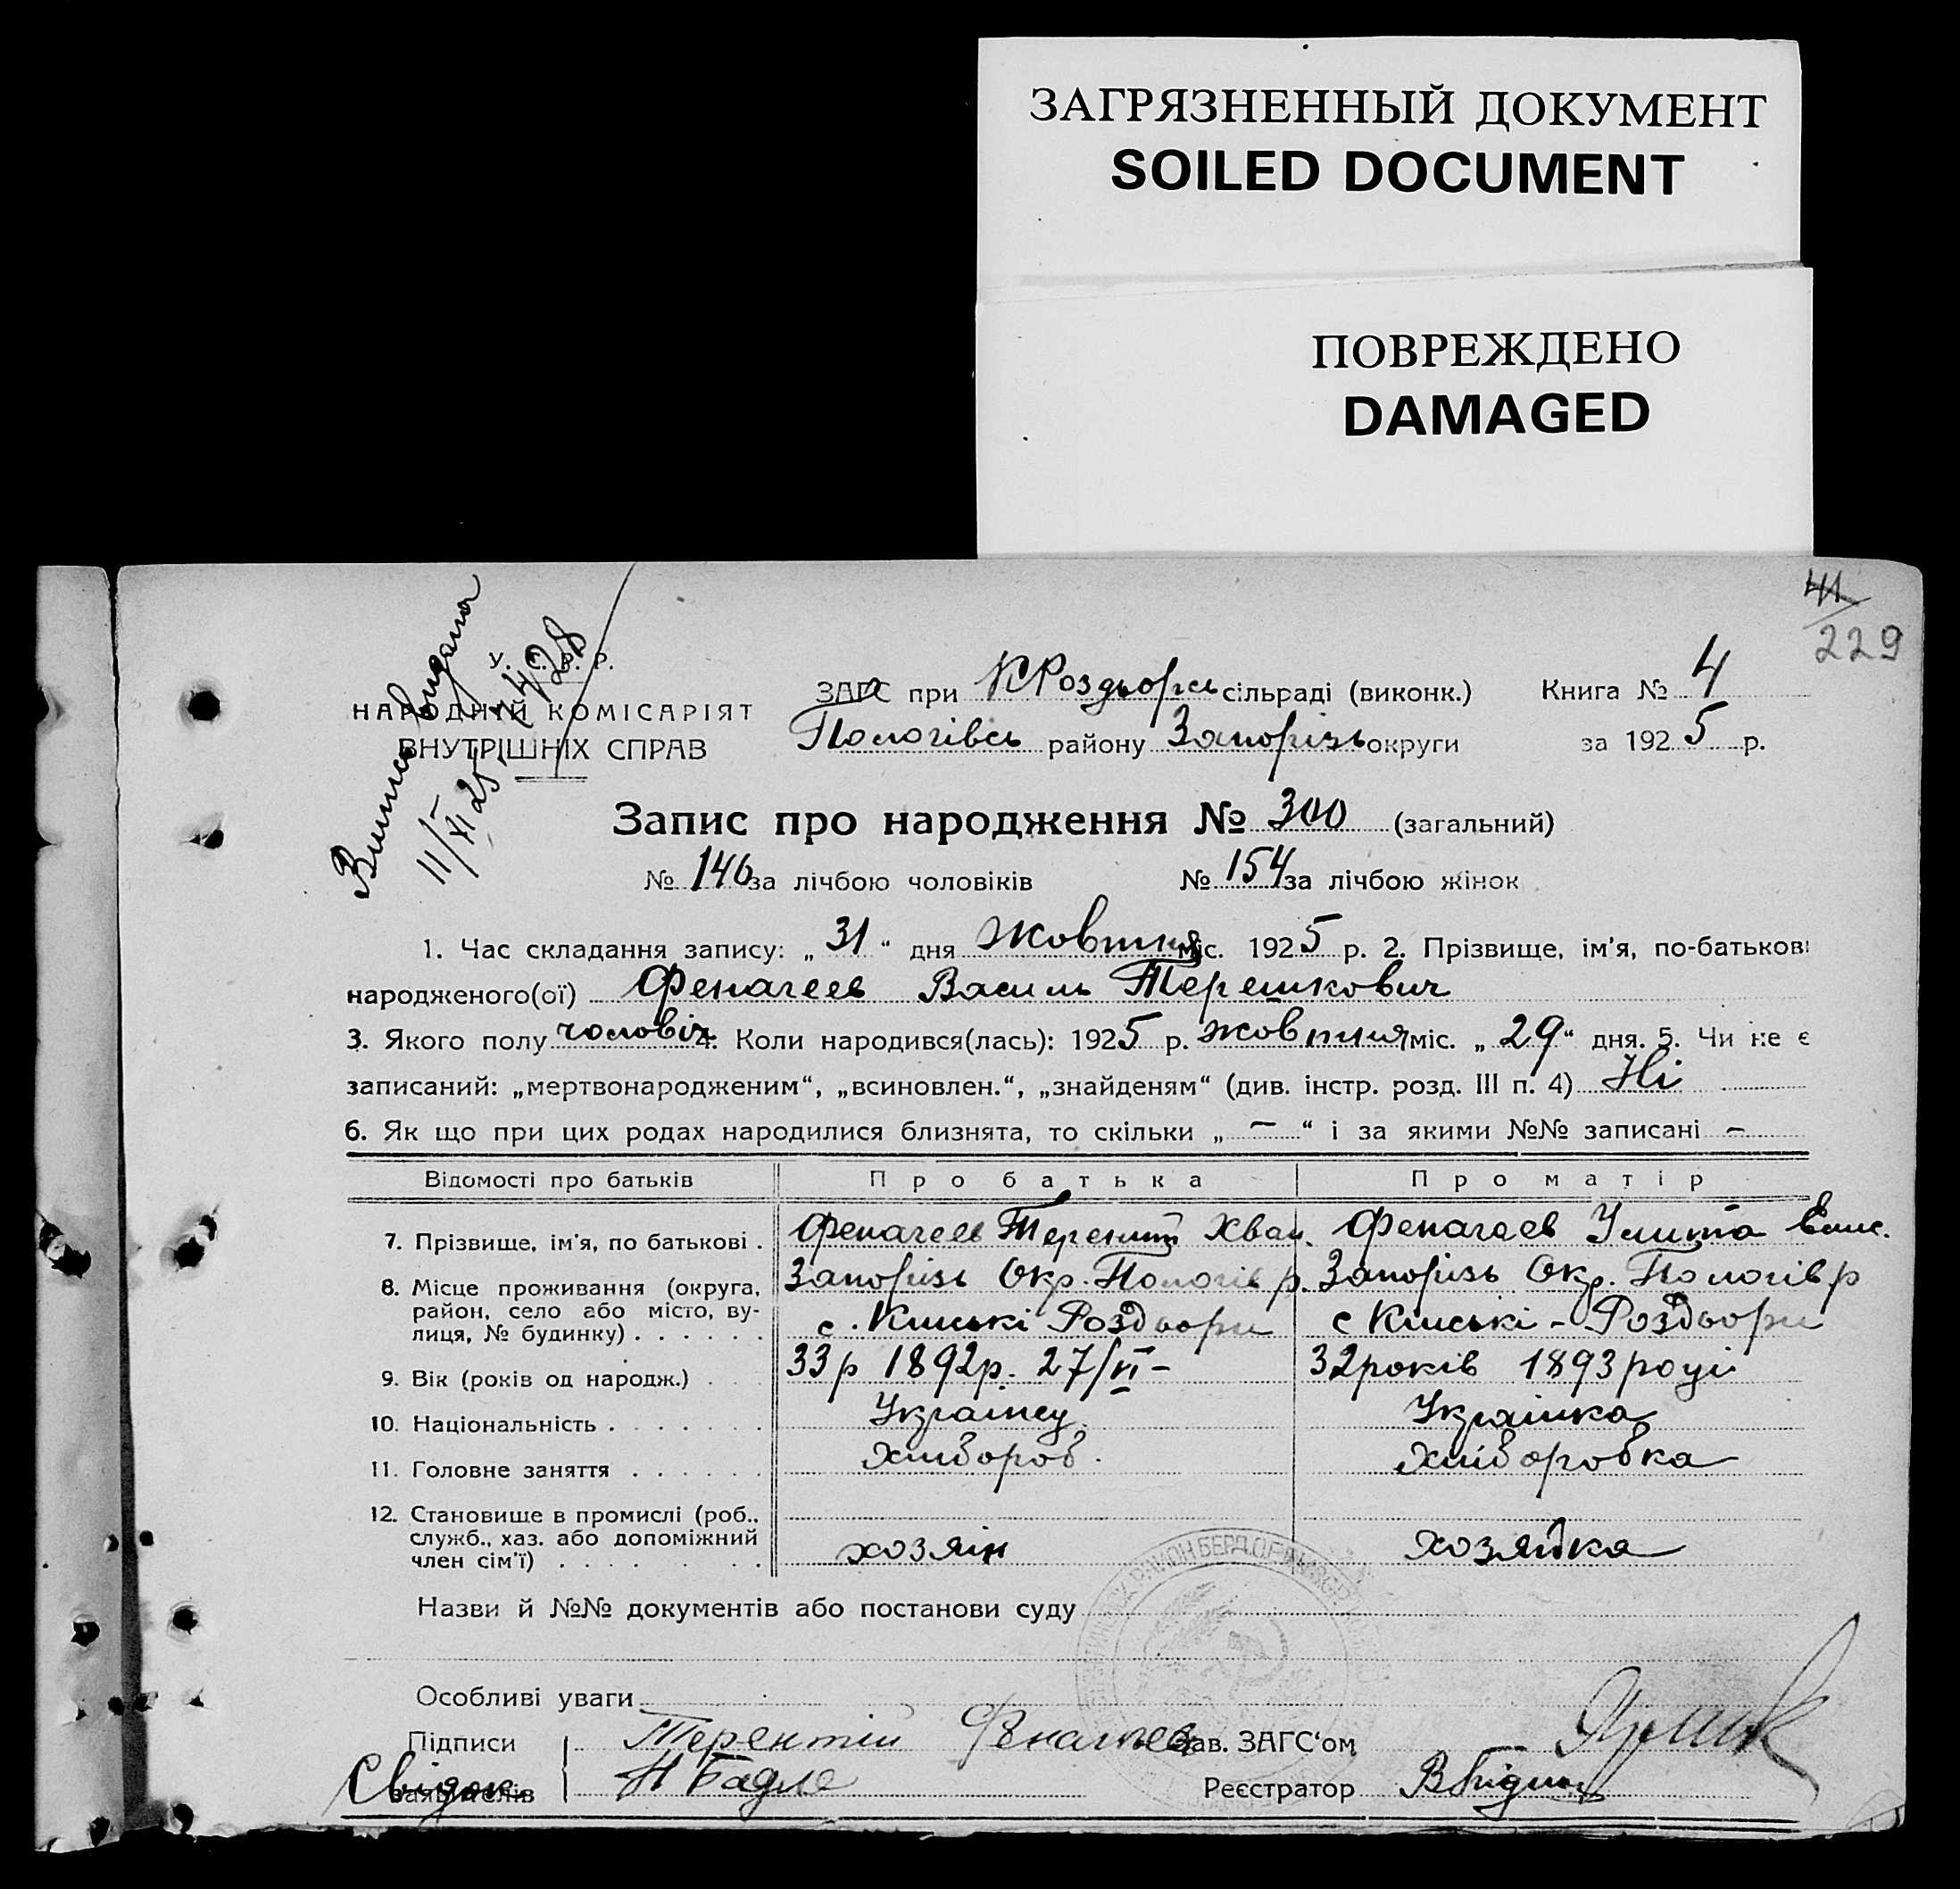 ЗАГРЯЗНЕННЫЙ ДОКУМЕНТ
SOILED DOCUMENT
ПОВРЕЖДЕНО
DAMAGED
41
229
Виписв видана
11/XI 25
У. С. Р. Р.
НАРОДНІЙ КОМІСАРІЯТ
ВНУТРІШНІХ СПРАВ
ЗАГС при К Роздьорсь сільраді (виконк.) Книга № 4
Пологівсь району Запорізь округи за 1925 р.
Запис про народження № 300 (загальний)
№ 146 за лічбою чоловіків № 154 за лічбою жінок
1. Час складання запису: „31“ дня Жовтня міс. 1925 р. 2. Прізвище, ім'я, по-батькові
народженого(ої) Фенагеев Василь Терешкович
3. Якого полу чоловіч 4. Коли народився(лась): 1925 р. жовтня міс. „29“ дня. 5. Чи не є
записаний: „мертвонародженим“, „всиновлен.“, „знайденям“ (див. інстр. розд. III п. 4) Ні
6. Як що при цих родах народилися близнята, то скільки „ — “ і за якими №№ записані —
Відомості про батьків Про батька Про матір
7. Прізвище, ім'я, по батькові . Фенагеев Терентій Хван. Фенагаев Улита Елис.
8. Місце проживання (округа, район, село або місто, вулиця, № будинку) . . . . . . Запорізь Окр. Пологів р. Запорізь Окр. Пологів р
с. Кінські Роздори с Кінські - Роздори
9. Вік (років од народж.) . . . 33 р 1892 р. 27/VI - 32 років 1893 році
10. Національність . . . . . . . Українец Українка
11. Головне заняття . . . . . . Хлібороб. Хліборобка
12. Становище в промислі (роб., служб., хаз. або допоміжний член сім'ї) . . . . . . . хозяін хозяйка
Назви й №№ документів або постанови суду
Особливі уваги
Підписи Терентій Фенагеев Зав. ЗАГС'ом
Свідок заявителів Реєстратор